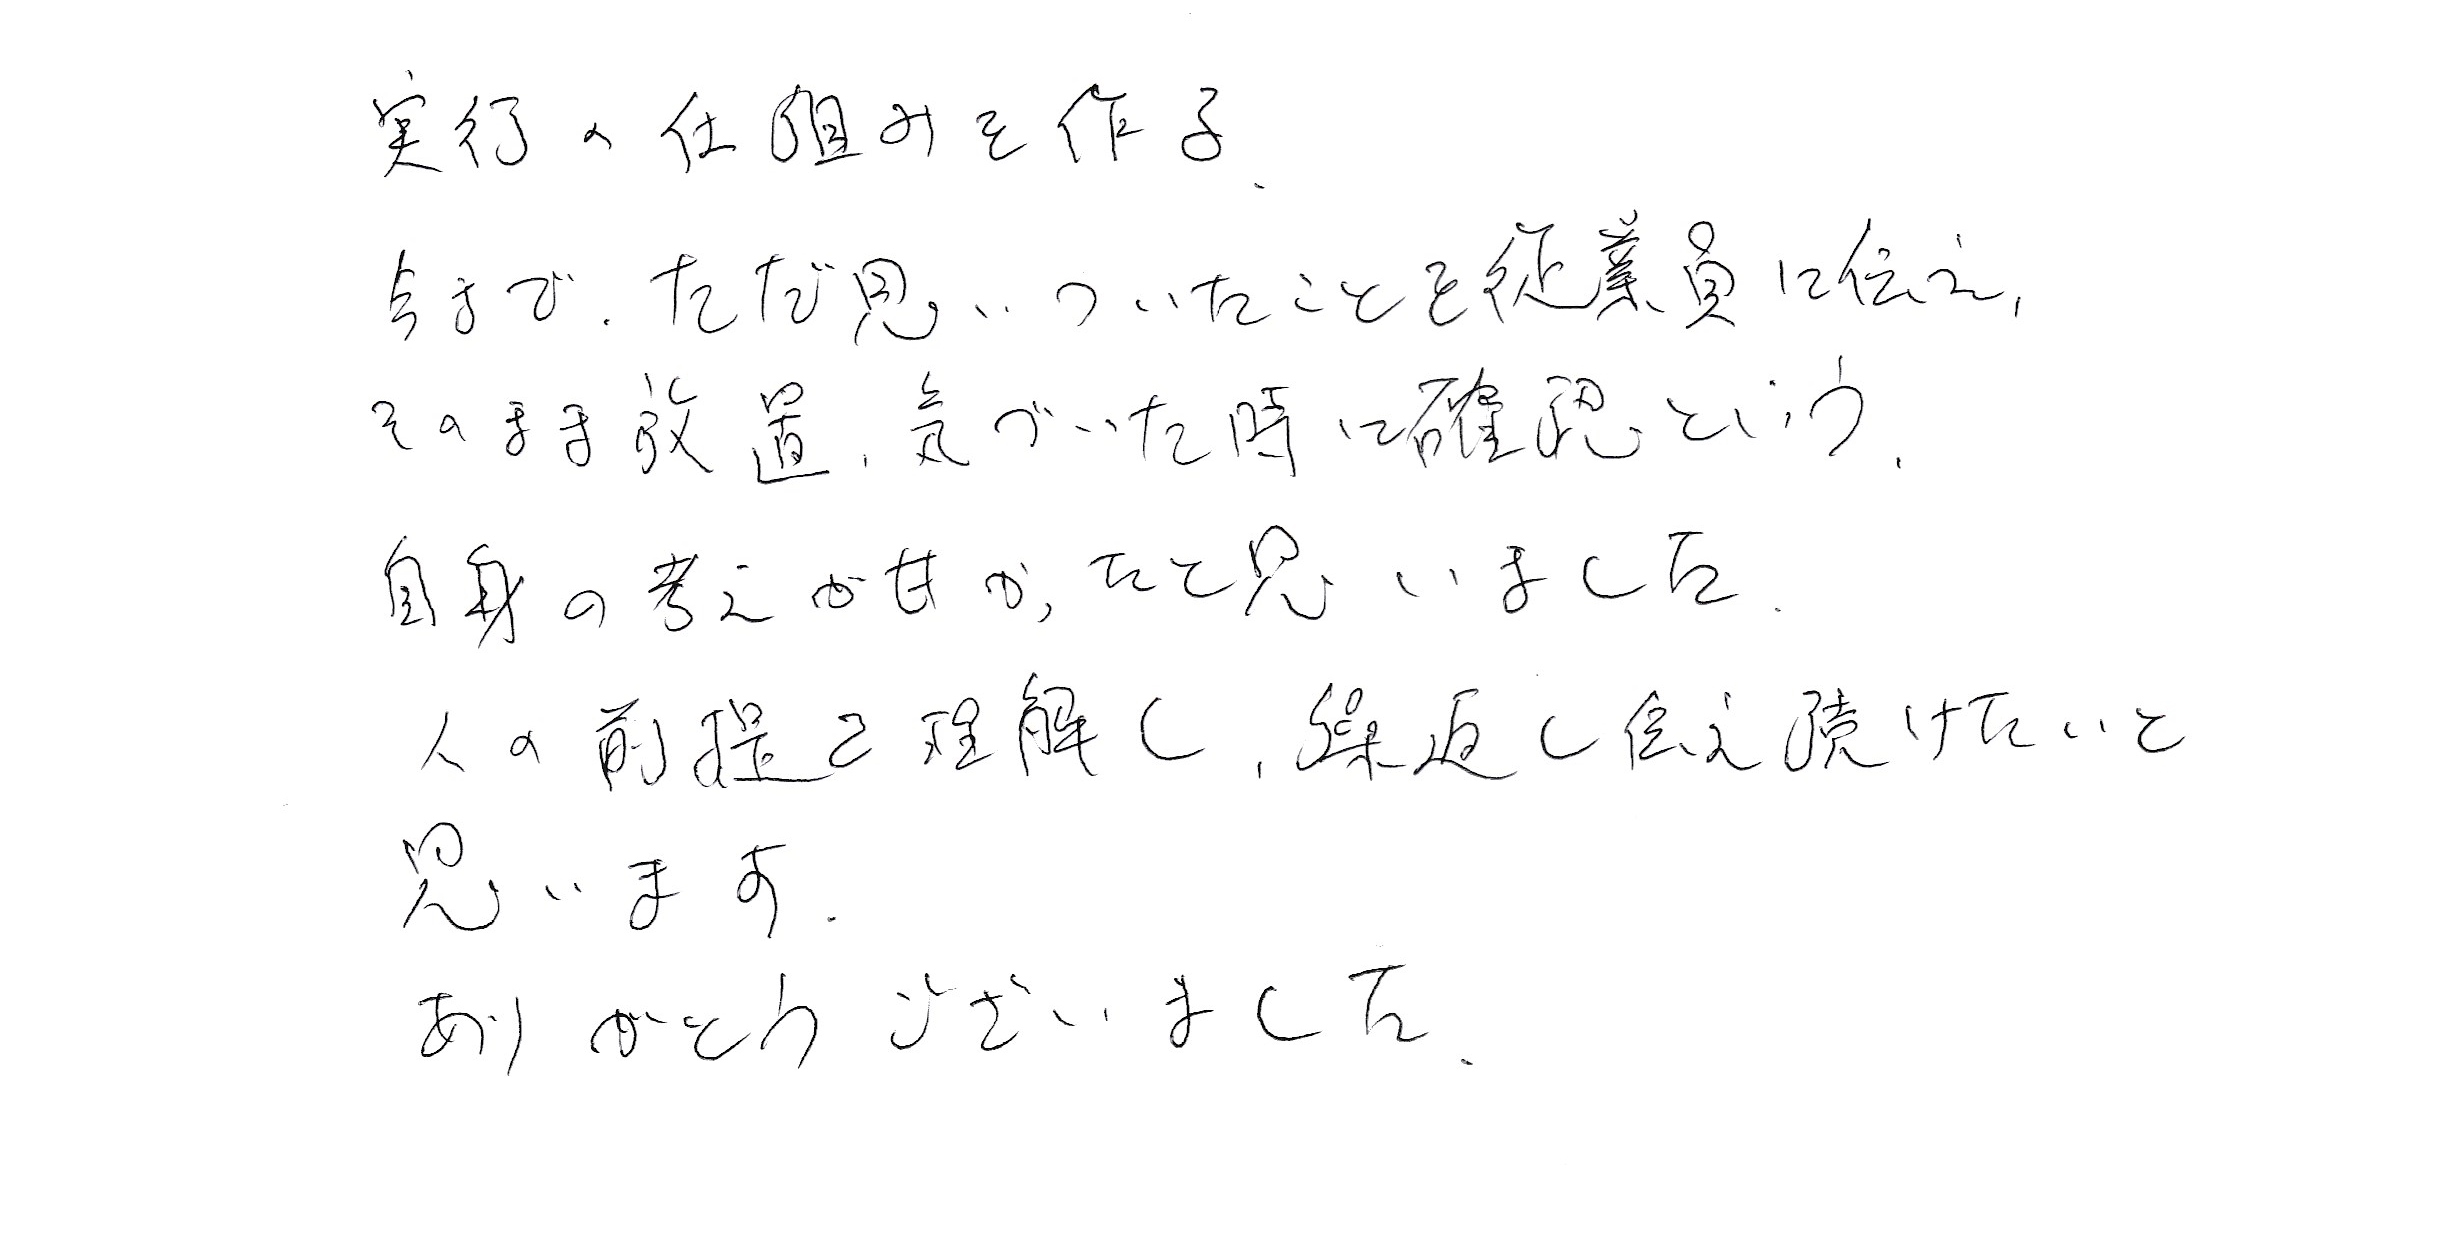 実行の仕組みを作る.
今まで、ただ思いついたことを従業員に伝え,
そのまま放置、気づいた時に確認という、
自身の考えが甘かったと思いました.
人の前提を理解し、繰返し伝え続けたいと
思います.
ありがとうございました.